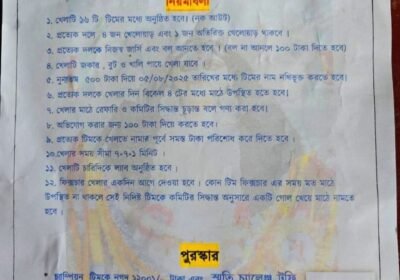 নিয়মাবলী
১. খেলাটি ১৬ টি টিমের মধ্যে অনুষ্ঠিত হবে। (নক আউট)
২. প্রত্যেক দলে ৪ জন খেলোয়াড় এবং ১ জন অতিরিক্ত খেলোয়াড় থাকবে।
৩. প্রত্যেক দলকে নিজস্ব জার্সি এবং বল আনতে হবে। (বল না আনলে ১০০ টাকা দিতে হবে)
৪. খেলাটি জকার, বুট ও খালি পায়ে খেলা যাবে।
৫. নুন্যতম ৫০০ টাকা দিয়ে ০৫/০৮/২০২৫ তারিখের মধ্যে টিমের নাম নথিভুক্ত করতে হবে।
৬. প্রত্যেক দলকে খেলার দিন বিকেল ৪ টের মধ্যে মাঠে উপস্থিত হতে হবে।
৭. খেলার মাঠে রেফারি ও কমিটির সিদ্ধান্ত চূড়ান্ত বলে গণ্য করা হবে।
৮. অভিযোগ করার জন্য ১০০ টাকা দিয়ে করতে হবে।
৯. প্রত্যেক টিমকে খেলতে নামার পূর্বে সমস্ত টাকা পরিশোধ করে দিতে হবে।
১০.খেলার সময় সীমা ৭-৭-১ মিনিট ।
১১. খেলাটি চারিদিকে ল্যাব অনুষ্ঠিত হবে।
১২. ফিক্সচার খেলার একদিন আগে দেওয়া হবে । কোন টিম ফিক্সচার এর সময় মত মাঠে
উপস্থিত না থাকলে সেই নির্দিষ্ট টিমকে কমিটির সিদ্ধান্ত অনুসারে একটি গোল খেয়ে মাঠে নামতে
হবে ।
পুরস্কার
চ্যাম্পিয়ন টিমকে নগদ ১২০০১/- টাকা এবং স্মৃতি চ্যালেঞ্জ ট্রফি